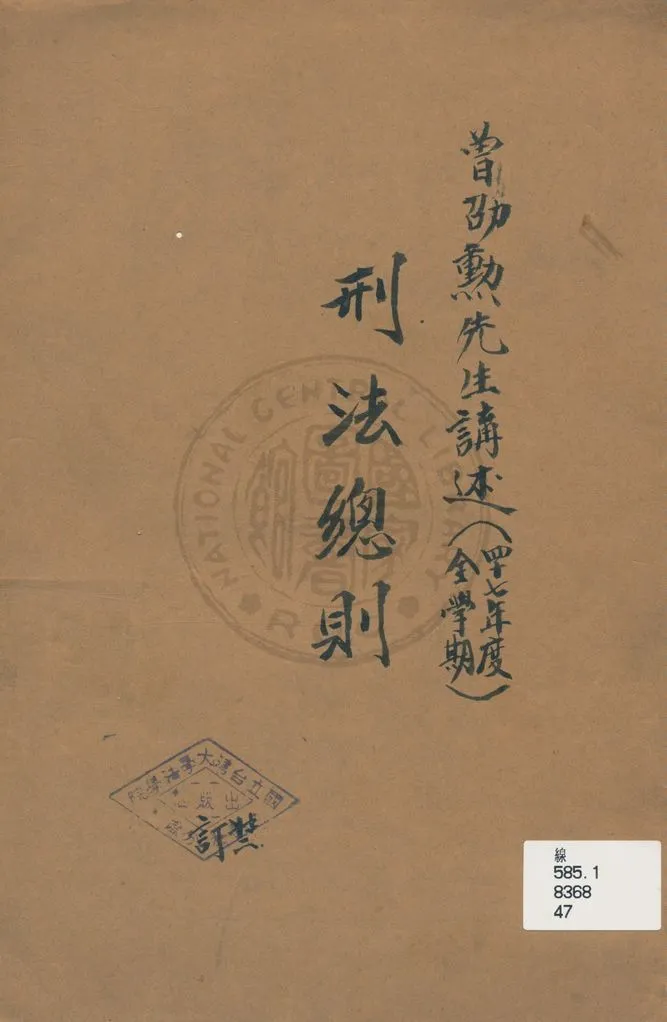 曾劭勲先生講述（四十七年度
全學期）
刑法總則
NATIONAL CENTRAL LIBRARY
國立台灣大學法學院
出版
訂
線
585.1
8368
47